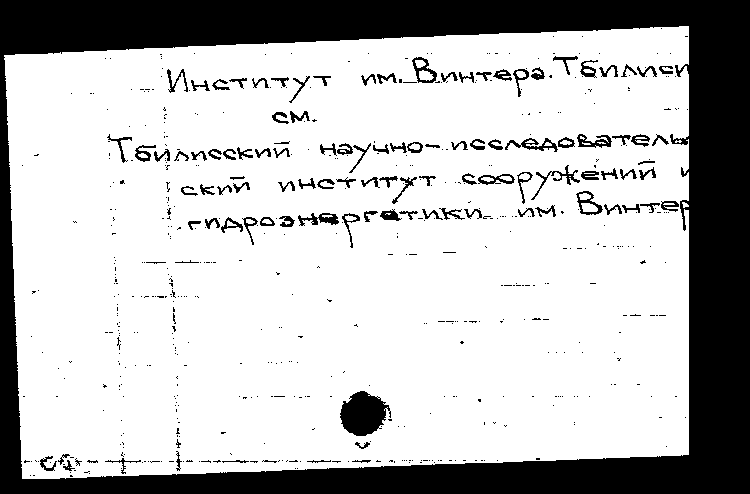 Институт им. Винтера. Тбилиси
см.
Тбилисский научно-исследователь
ский институт сооружений и
гидроэнергетики им. Винтер